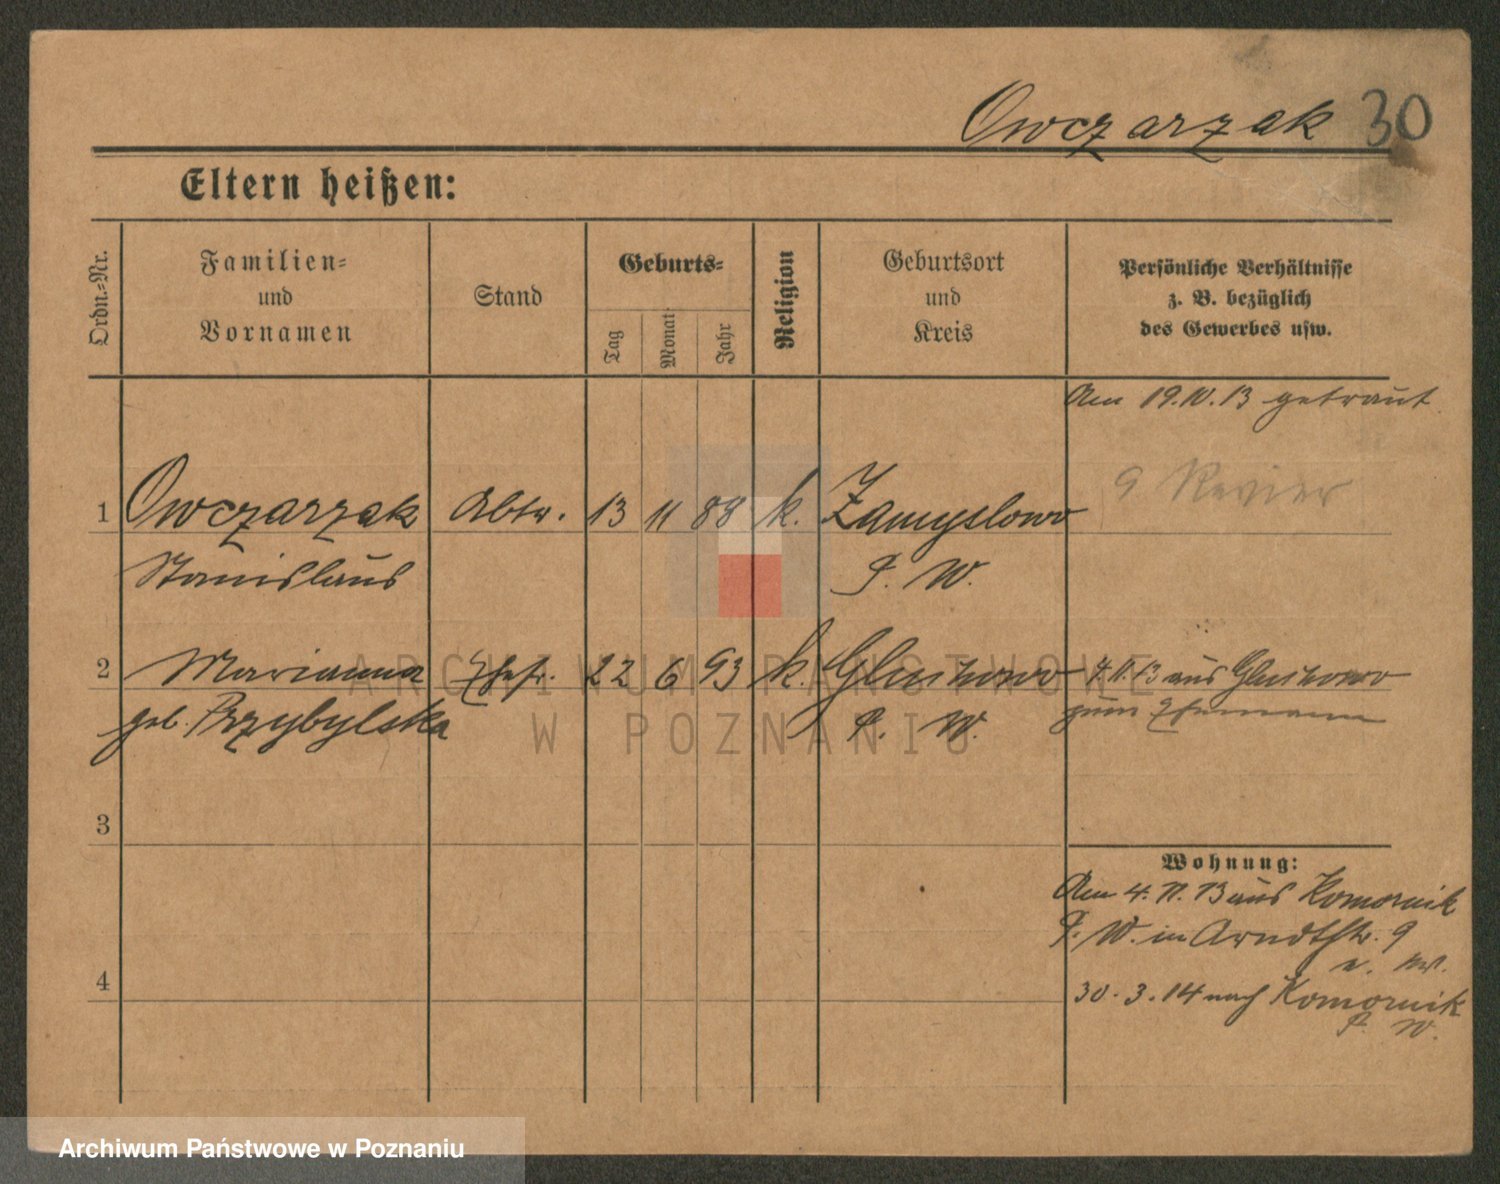 Owczarzak 30
Eltern heißen:
Ordn.-Nr.
Familien-
und
Vornamen
Stand
Geburts-
Tag
Monat
Jahr
Religion
Geburtsort
und
Kreis
Persönliche Verhältnisse
z. B. bezüglich
des Gewerbes usw.
Am 19.10.13 getraut
9 Revier
1 Owczarzak Abtr. 13 11 88 k. Zamyslowo
Stanislaus P. W.
2 Marianna Ehefr. 22 6 93 k. Gluchowo 4.11.13 aus Gluchowo
geb. Przybylska P. W. zum Ehemann
3
Wohnung:
Am 4.11.13 aus Komornik
P. W. in Arndtstr. 9
4
30.3.14 nach Komornik
P. W.
ARCHIWUM PAŃSTWOWE
W POZNANIU
Archiwum Państwowe w Poznaniu